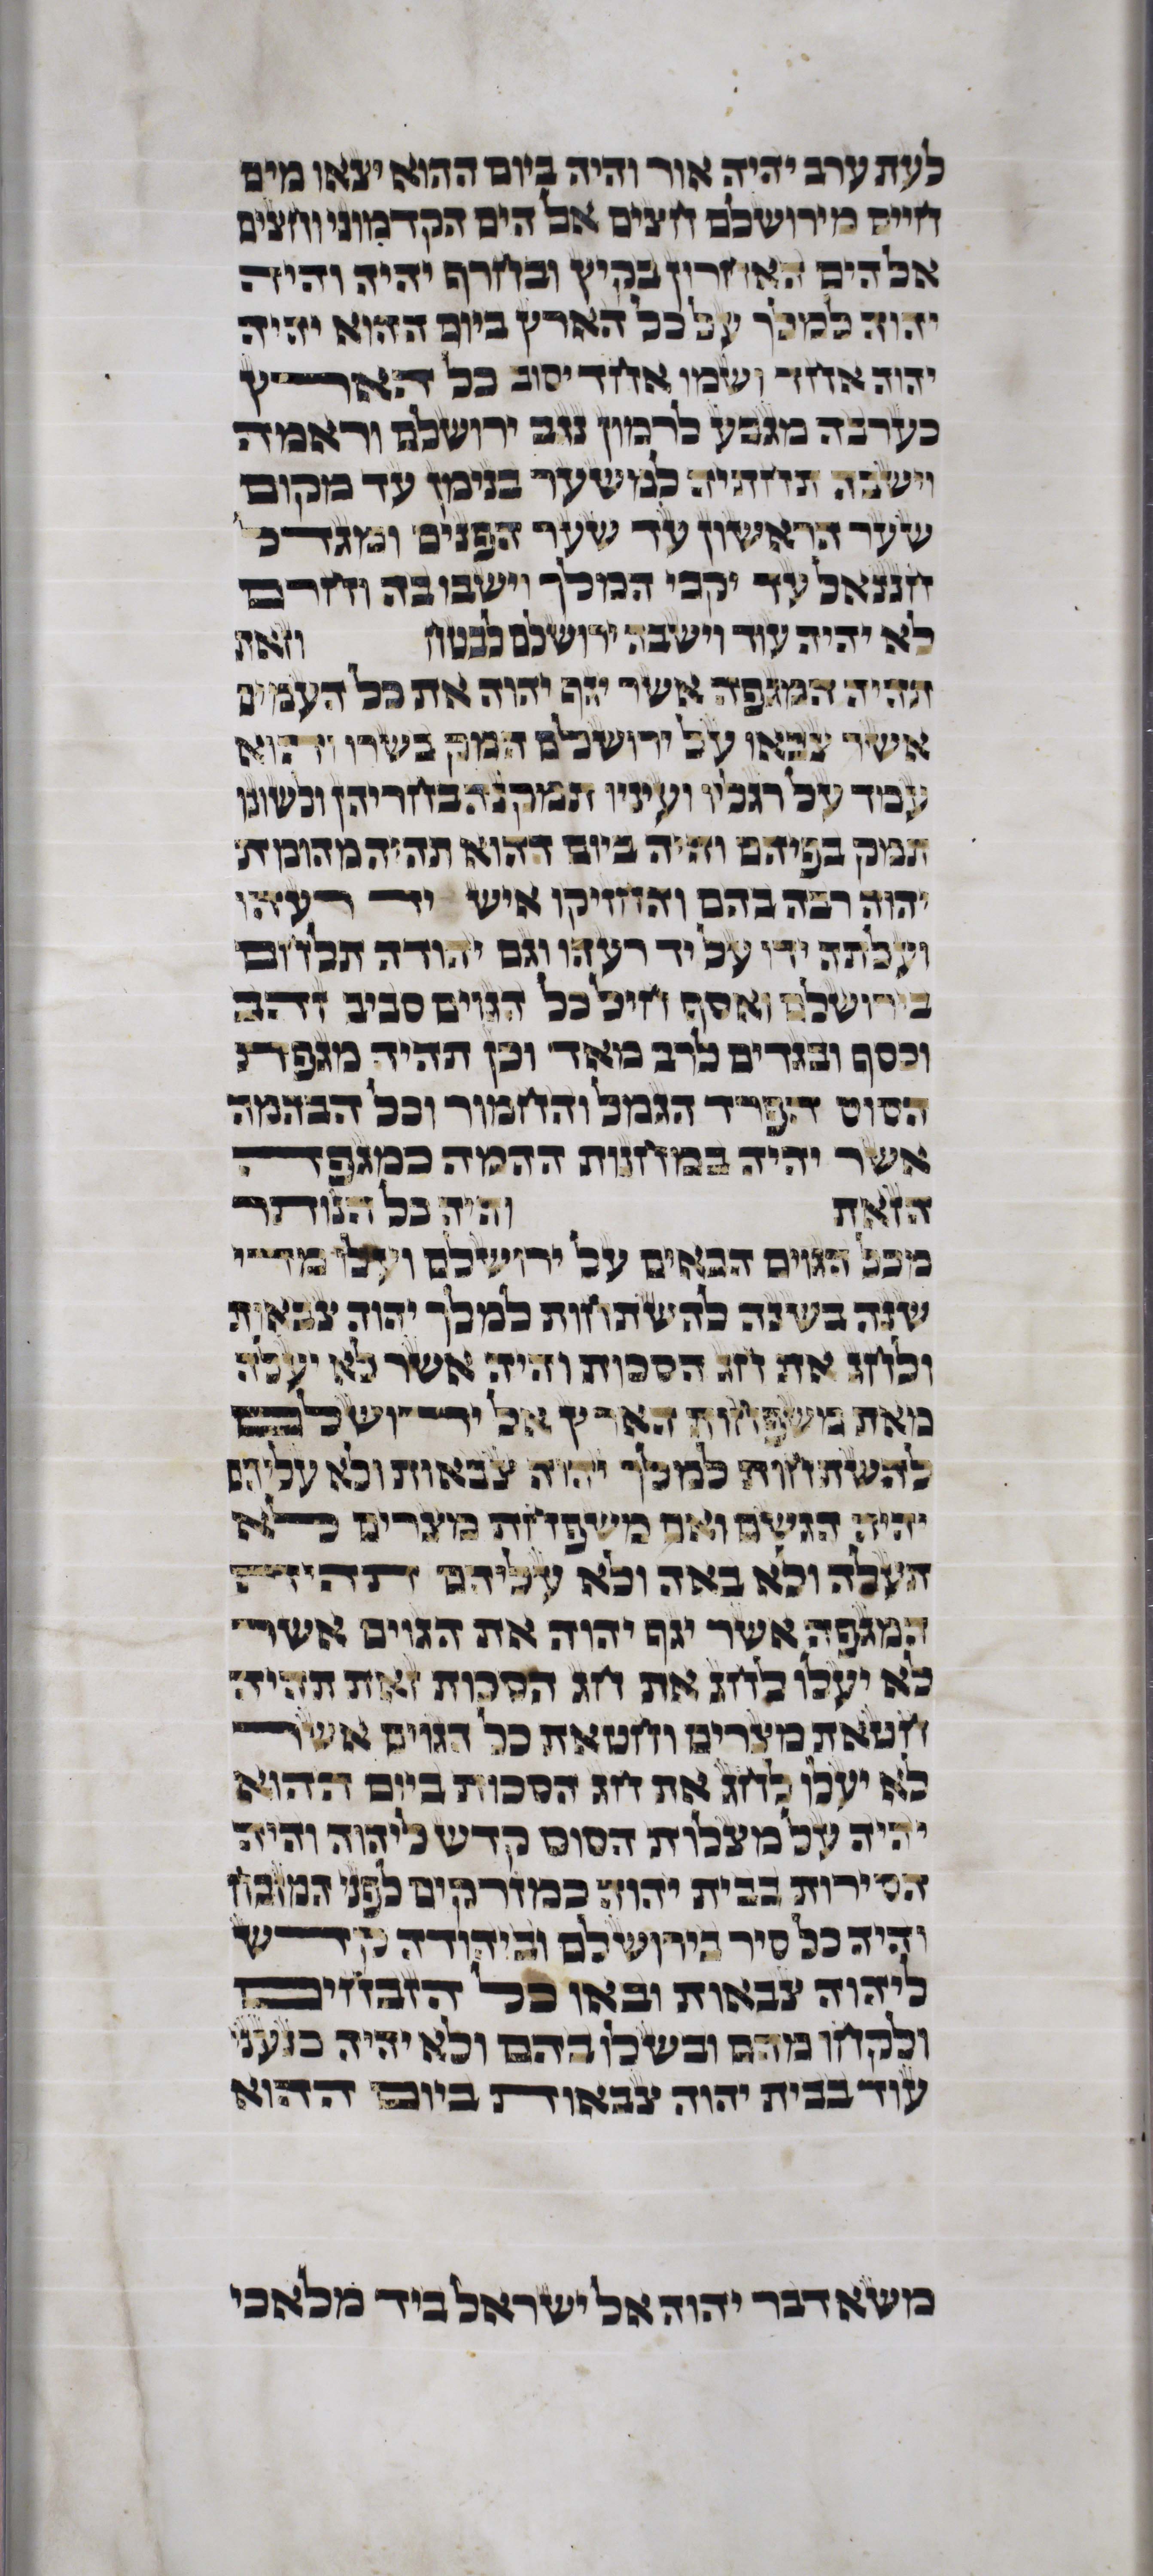 לעת ערב יהיה אור והיה ביום ההוא יצאו מים
חיים מירושלם חצים אל הים הקדמוני וחצים
אל הים האחרון בקיץ ובחרף יהיה והיה
יהוה למלך על כל הארץ ביום ההוא יהיה
יהוה אחד ושמו אחד יסוב כל הארץ
כערבה מגבע לרמון נגב ירושלם וראמה
וישבה תחתיה למשער בנימן עד מקום
שער הראשון עד שער הפנים ומגדל
חננאל עד יקבי המלך וישבו בה וחרם
לא יהיה עוד וישבה ירושלם לבטח וזאת
תהיה המגפה אשר יגף יהוה את כל העמים
אשר צבאו על ירושלם המק בשרו והוא
עמד על רגליו ועיניו תמקנה בחריהן ולשונו
תמק בפיהם והיה ביום ההוא תהיה מהומת
יהוה רבה בהם והחזיקו איש יד רעהו
ועלתה ידו על יד רעהו וגם יהודה תלחם
בירושלם ואסף חיל כל הגוים סביב זהב
וכסף ובגדים לרב מאד וכן תהיה מגפת
הסוס הפרד הגמל והחמור וכל הבהמה
אשר יהיה במחנות ההמה כמגפה
הזאת והיה כל הנותר
מכל הגוים הבאים על ירושלם ועלו מדי
שנה בשנה להשתחות למלך יהוה צבאות
ולחג את חג הסכות והיה אשר לא יעלה
מאת משפחות הארץ אל ירושלם
להשתחות למלך יהוה צבאות ולא עליהם
יהיה הגשם ואם משפחת מצרים לא
תעלה ולא באה ולא עליהם תהיה
המגפה אשר יגף יהוה את הגוים אשר
לא יעלו לחג את חג הסכות זאת תהיה
חטאת מצרים וחטאת כל הגוים אשר
לא יעלו לחג את חג הסכות ביום ההוא
יהיה על מצלות הסוס קדש ליהוה והיה
הסירות בבית יהוה כמזרקים לפני המזבח
והיה כל סיר בירושלם וביהודה קדש
ליהוה צבאות ובאו כל הזבחים
ולקחו מהם ובשלו בהם ולא יהיה כנעני
עוד בבית יהוה צבאות ביום ההוא
משא דבר יהוה אל ישראל ביד מלאכי